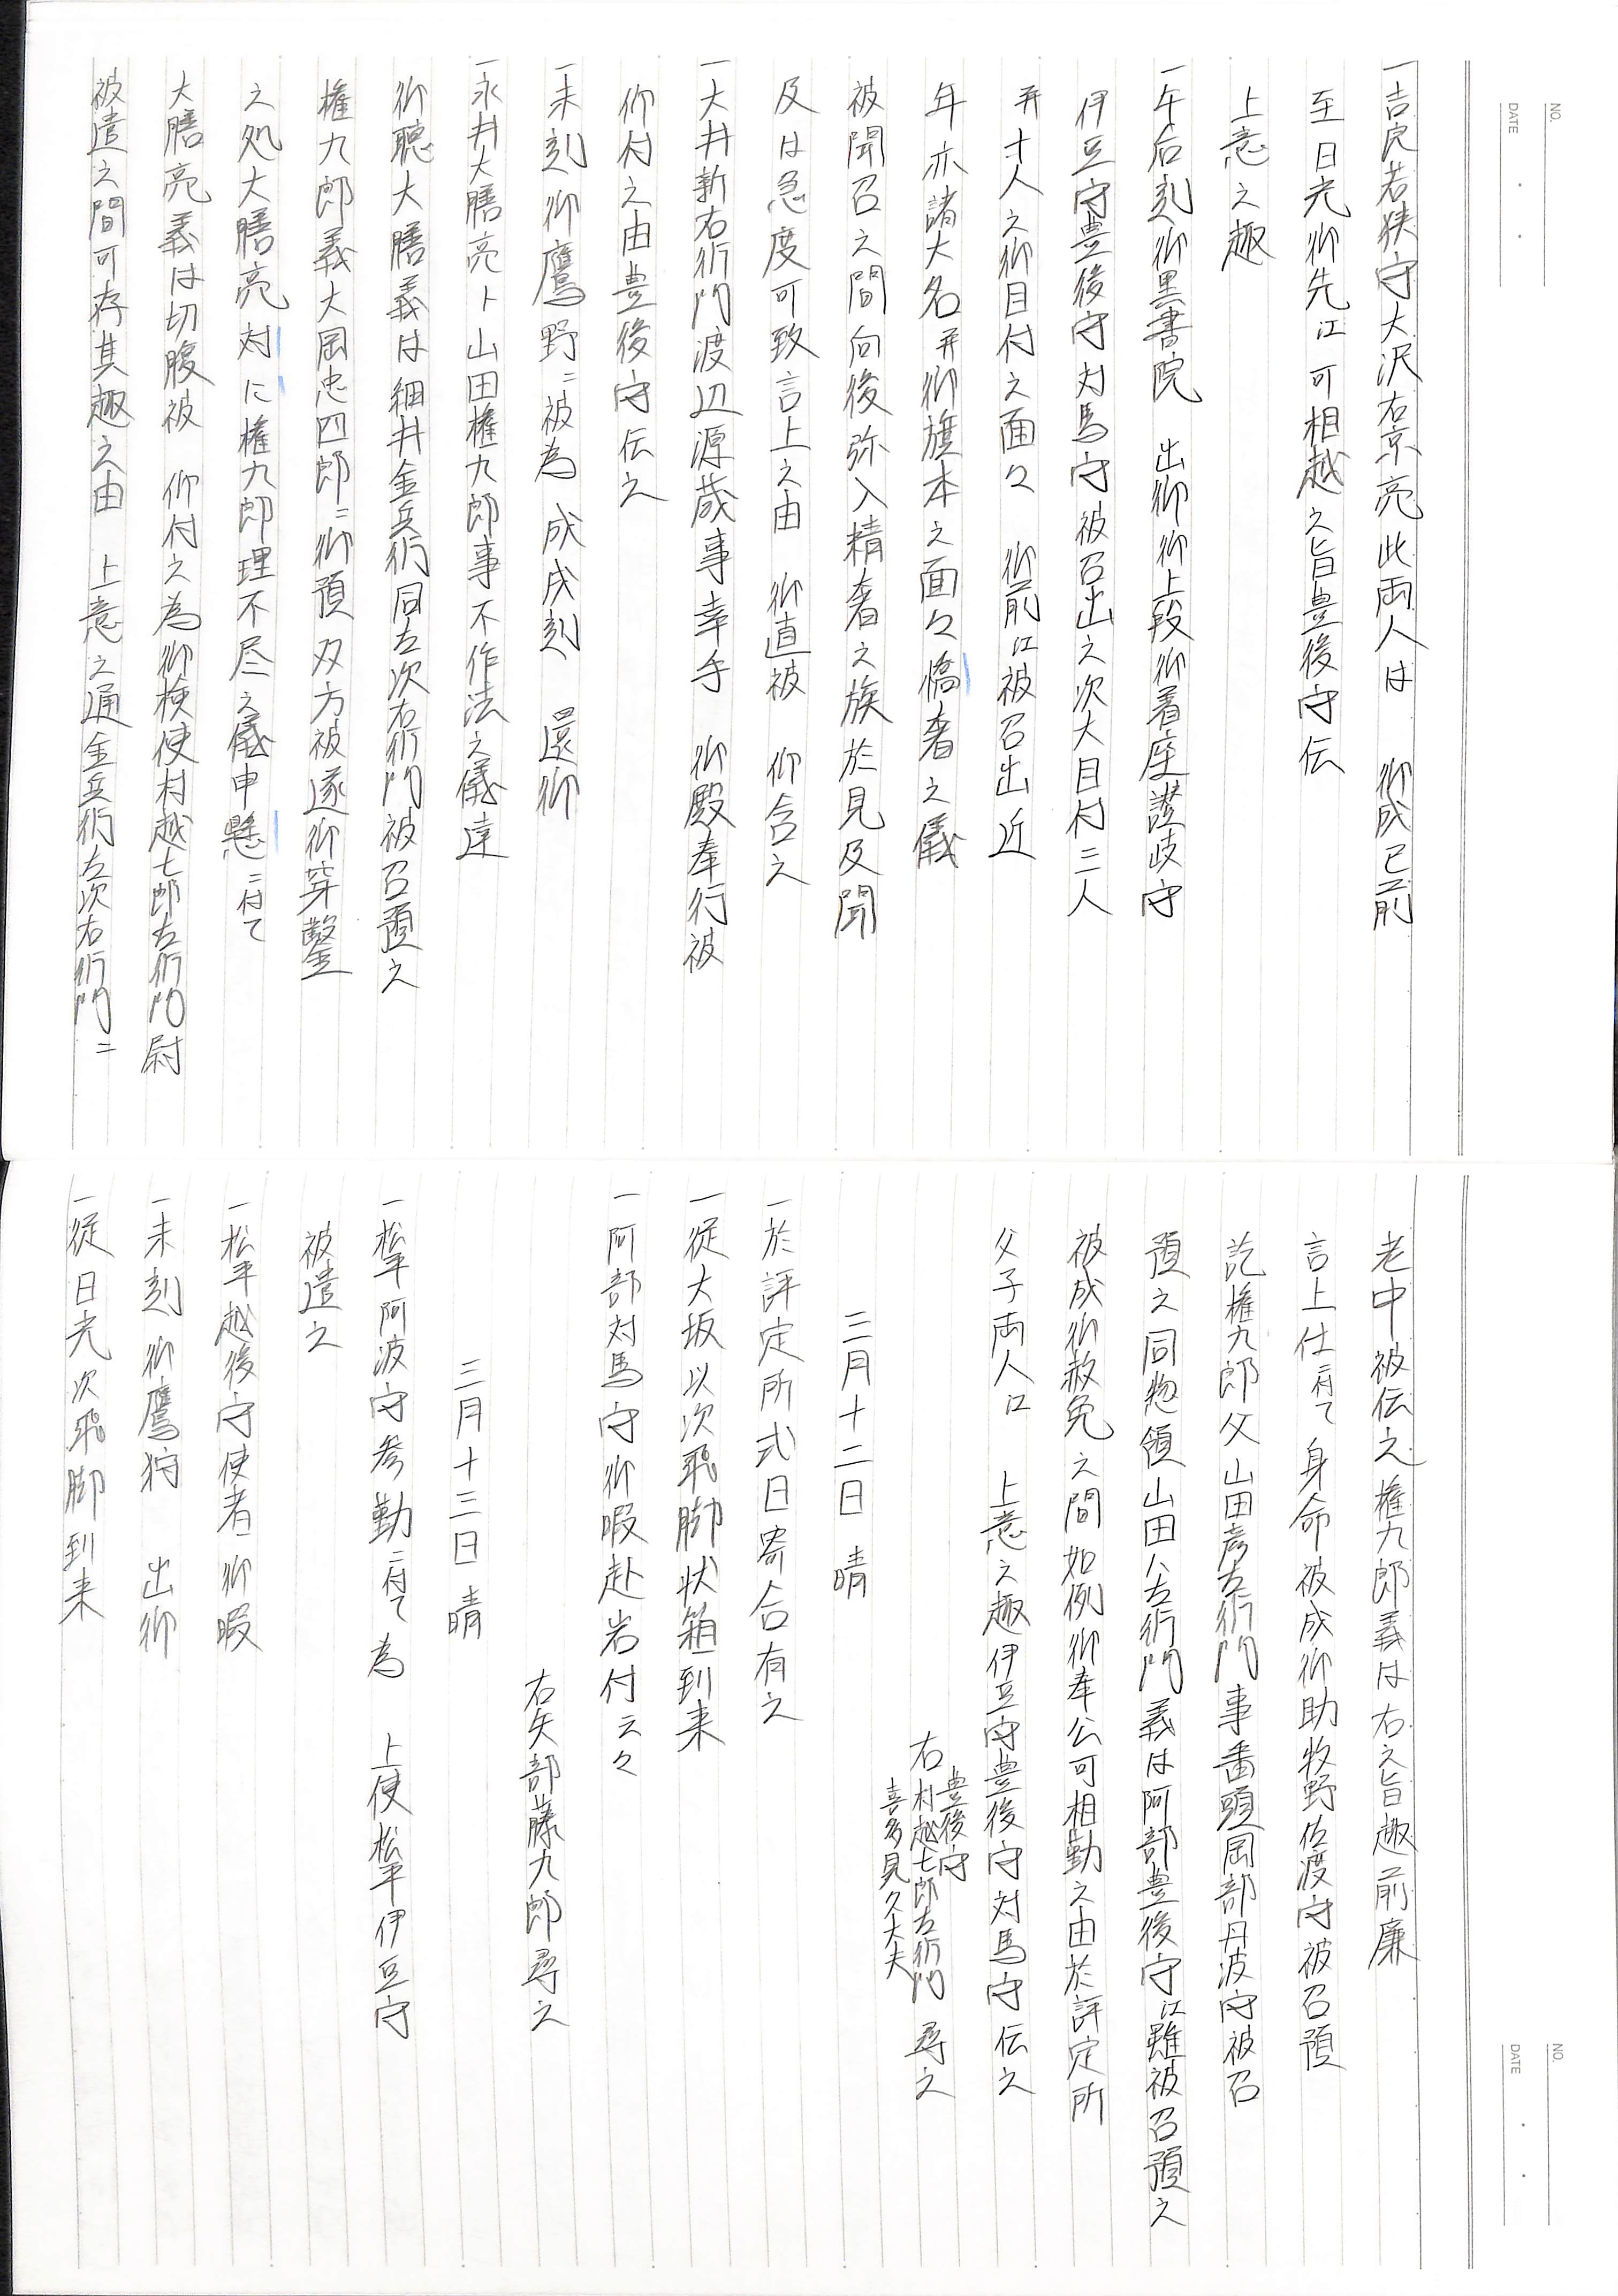 NO.
DATE
一吉良若狭守大沢右京亮此両人は　御成已前
至日光御先江可相越之旨豊後守伝
上意之趣
一午后刻御黒書院　出御御上段御着座讃岐守
伊豆守豊後守対馬守被召出之次大目付三人
并十人之御目付之面々　御前江被召出近
年亦諸大名并御旗本之面々憍奢之儀
被聞召之間向後弥入精奢之族於見及聞
及は急度可致言上之由　御直被　仰含之
一大井新右衛門渡辺源蔵事幸手　御殿奉行被
仰付之由豊後守伝之
一未刻御鷹野ニ被為　成戌刻　還御
一永井大膳亮ト山田権九郎事不作法之儀達
御聴大膳義は細井金兵衛同左次右衛門被召預之
権九郎義大岡忠四郎ニ御預双方被遂御穿鑿
之処大膳亮対に権九郎理不尽之儀申懸ニ付て
大膳亮義は切腹被　仰付之為御検使村越七郎左衛門尉
被遣之間可存其趣之由　上意之通金兵衛左次右衛門ニ
NO.
DATE
老中被伝之権九郎義は右之旨趣前廉
言上仕ニ付て身命被成御助牧野佐渡守被召預
訖権九郎父山田彦左衛門事番頭岡部丹波守被召
預之同惣領山田八左衛門義は阿部豊後守江雖被召預之
被成御赦免之間如例御奉公可相勤之由於評定所
父子両人江　上意之趣伊豆守豊後守対馬守伝之
豊後守
右村越七郎左衛門　尋之
喜多見久大夫
三月十二日　晴
一於評定所式日寄合有之
一従大坂以次飛脚状箱到来
一阿部対馬守御暇赴岩付云々
右矢部藤九郎尋之
三月十三日　晴
一松平阿波守参勤ニ付て為　上使松平伊豆守
被遣之
一松平越後守使者御暇
一未刻御鷹狩　出御
一従日光次飛脚到来